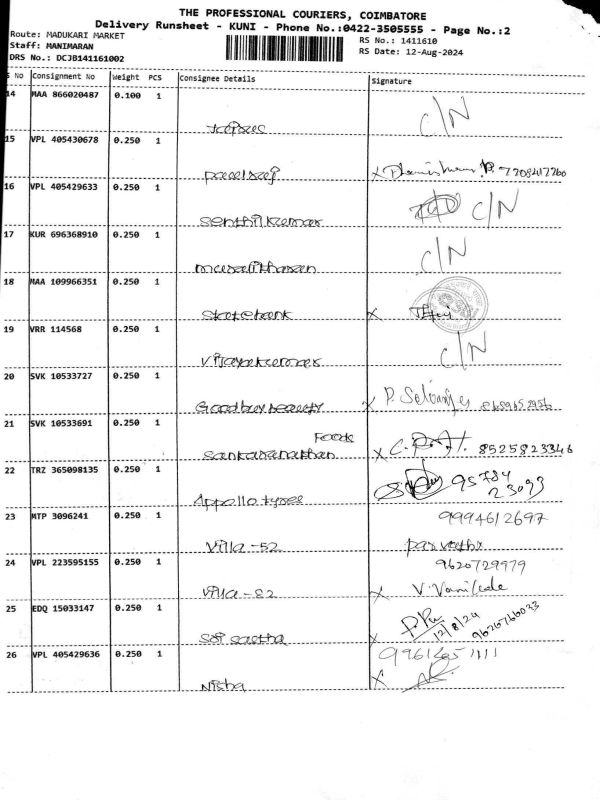 THE PROFESSIONAL COURIERS, COIMBATORE
Delivery Runsheet - KUNI - Phone No.:0422-3505555 - Page No.:2
Route: MADUKARI MARKET
RS No.: 1411610
Staff: MANIMARAN
RS Date: 12-Aug-2024
DRS No.: DCJB141161002
S No Consignment No Weight PCS Consignee Details Signature
14 MAA 866020487 0.100 1
C/N
15 VPL 405430678 0.250 1
7708417760
16 VPL 405429633 0.250 1
C/N
senthilkumar
17 KUR 696368910 0.250 1
C/N
muralitharan
18 MAA 109966351 0.250 1
statebank X
19 VRR 114568 0.250 1
C/N
vijayakumar
20 SVK 10533727 0.250 1
X P.
21 SVK 10533691 0.250 1
Foods
X C. 8525823346
22 TRZ 365098135 0.250 1
95784
23093
Appollo tyres
23 MTP 3096241 0.250 1
9994612697
Villa-52 parvathy
24 VPL 223595155 0.250 1
9620729979
Villa-82 X V.
25 EDQ 15033147 0.250 1
12/8/24 9626766033
X
26 VPL 405429636 0.250 1
Nisha X